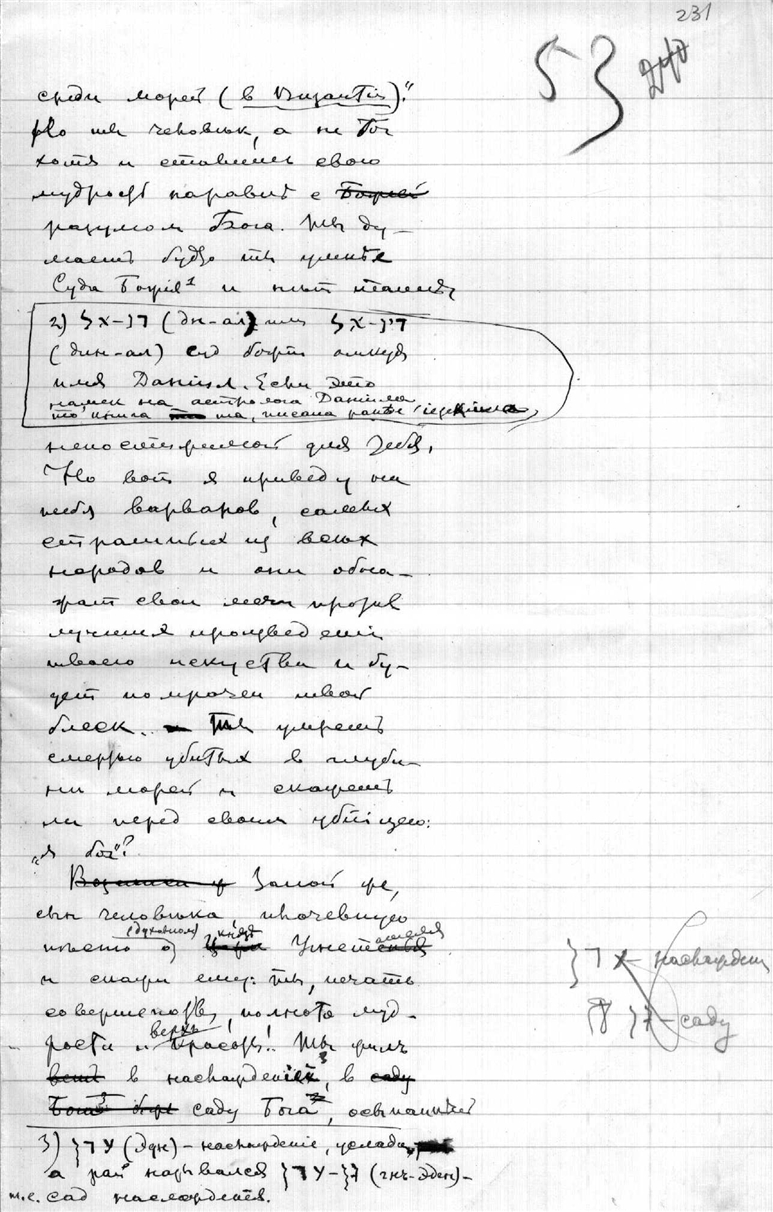 231
53
среди морей (в Византiи)."
Но ты человѣк, а не Бог
хотя и ставишь свою
мудрость наравнѣ с Божiей
разумом Бога. Ты ду-
маешь будто ты умнѣе
Суда Божiя¹ и нѣт тайны
2) דן-אל (дн-ал) или דין-אל
(дин-ал) суд божiй откуда
имя Данiил. Если это
намек на астролога Данiила
то книга та, писана
непостижимой для тебя,
Но вот я приведу на
тебя варваров, самых
страшных из всѣх
народов и они обна-
жат свои мечи против
лучших произведенiй
твоего искуства и бу-
дет помрачен твой
блеск. Ты умрешь
смертью убитых в глуби-
ни морей и скажешь
ли перед своим убiйцею:
„я бог"?
Заной же,
сын человѣка, плачевную
пѣснь о (духовном) князѣ
и скажи ему: ты, печать
совершенства, полнота муд-
рости и верх красоты! Ты жил
в наслажденiях³, в саду
Божiй был саду Бога, осыпанный
3) עדן (Эдн) – наслажденiе, услада,
а рай назывался גן-עדן (гнъ-Эден) –
т.е. сад наслажденiя.
наслажденiя
גן – саду